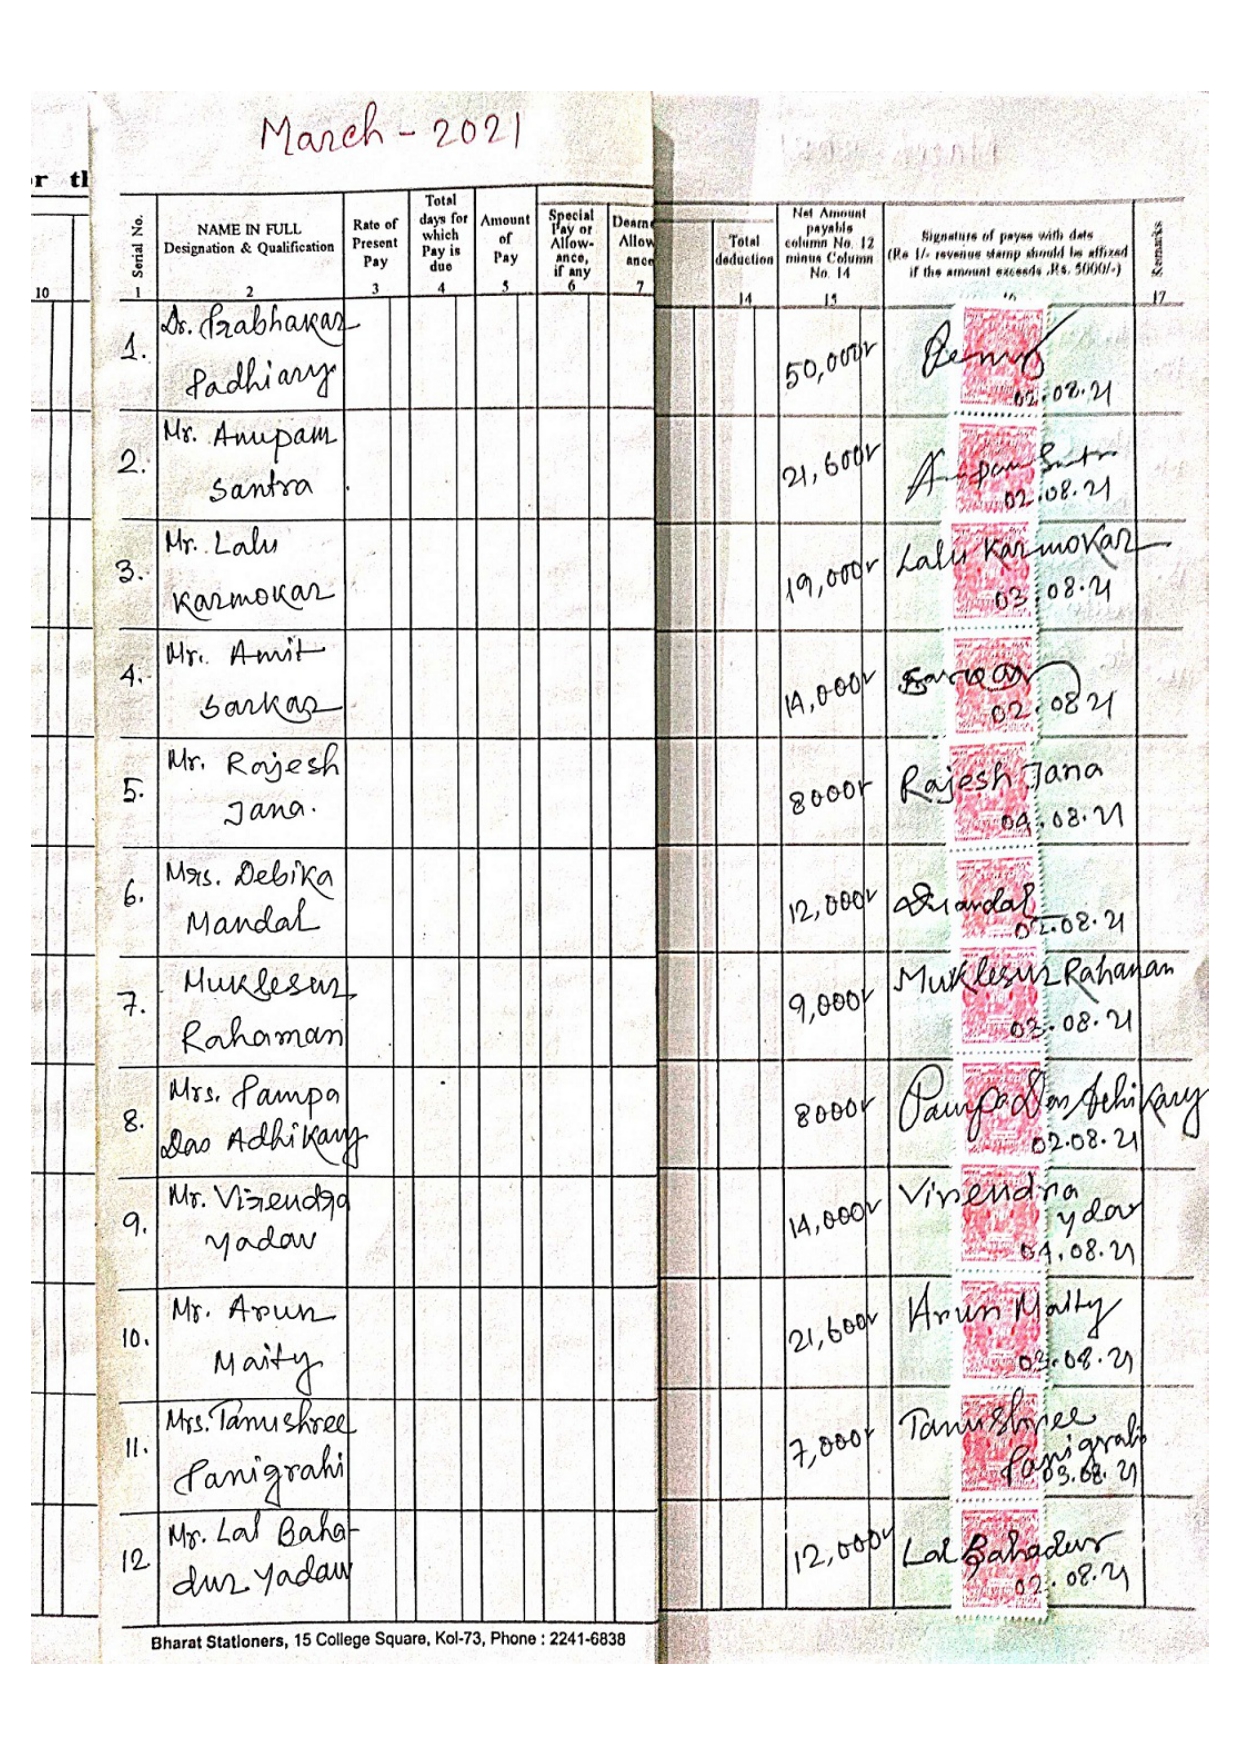 March - 2021
r th
Serial No.
NAME IN FULL
Designation & Qualification
Rate of
Present
Pay
Total
days for
which
Pay is
due
Amount
of
Pay
Special
Pay or
Allow-
ance,
if any
Dearn
Allow
ance
Total
deduction
Net Amount
payable
column No. 12
minus Column
No. 14
Signature of payee with date
(Re 1/- revenue stamp should be affixed
if the amount exceeds Rs. 5000/-)
Remarks
10 1 2 3 4 5 6 7 14 15 16 17
1. Dr. Prabhakar
Padhiary 50,000/-
02.08.21
2. Mr. Anupam
Santra 21,600/- Anupam Santra
02.08.21
3. Mr. Lalu
Karmokar 19,000/- Lalu Karmokar
03.08.21
4. Mr. Amit
Sarkar 14,000/- Sarkar
02.08.21
5. Mr. Rajesh
Jana. 8000/- Rajesh Jana
04.08.21
6. Mrs. Debika
Mandal 12,000/- DMandal
02.08.21
7. Muklesur
Rahaman 9,000/- Muklesur Rahaman
03.08.21
8. Mrs. Pampa
Das Adhikary 8000/- Pampa Das Adhikary
02.08.21
9. Mr. Virendra
Yadav 14,000/- Virendra
ydav
04.08.21
10. Mr. Arun
Maity 21,600/- Arun Maity
03.08.21
11. Mrs. Tanushree
Panigrahi 7,000/- Tanushree
Panigrahi
03.08.21
12 Mr. Lal Baha-
dur Yadav 12,000/- Lal Bahadur
02.08.21
Bharat Stationers, 15 College Square, Kol-73, Phone : 2241-6838